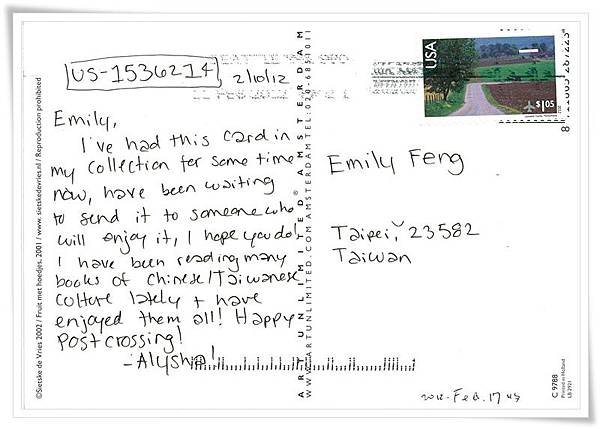 US-1536214
2/10/12
Emily,
I've had this card in
my collection for some time
now, have been waiting
to send it to someone who
will enjoy it, I hope you do!
I have been reading many
books of Chinese/Taiwanese
culture lately + have
enjoyed them all! Happy
Postcrossing!
-Alysha!
USA
$1.05
Emily Feng
Taipei, 23582
Taiwan
2012. Feb. 17
©Sieske de Vries 2002 / Fruit met hoedjes, 2001 / www.sieskedevries.nl / Reproduction prohibited
ART UNLIMITED AMSTERDAM
WWW.ARTUNLIMITED.COM AMSTERDAM TEL:
C 9788
Printed in Holland
LB 2931